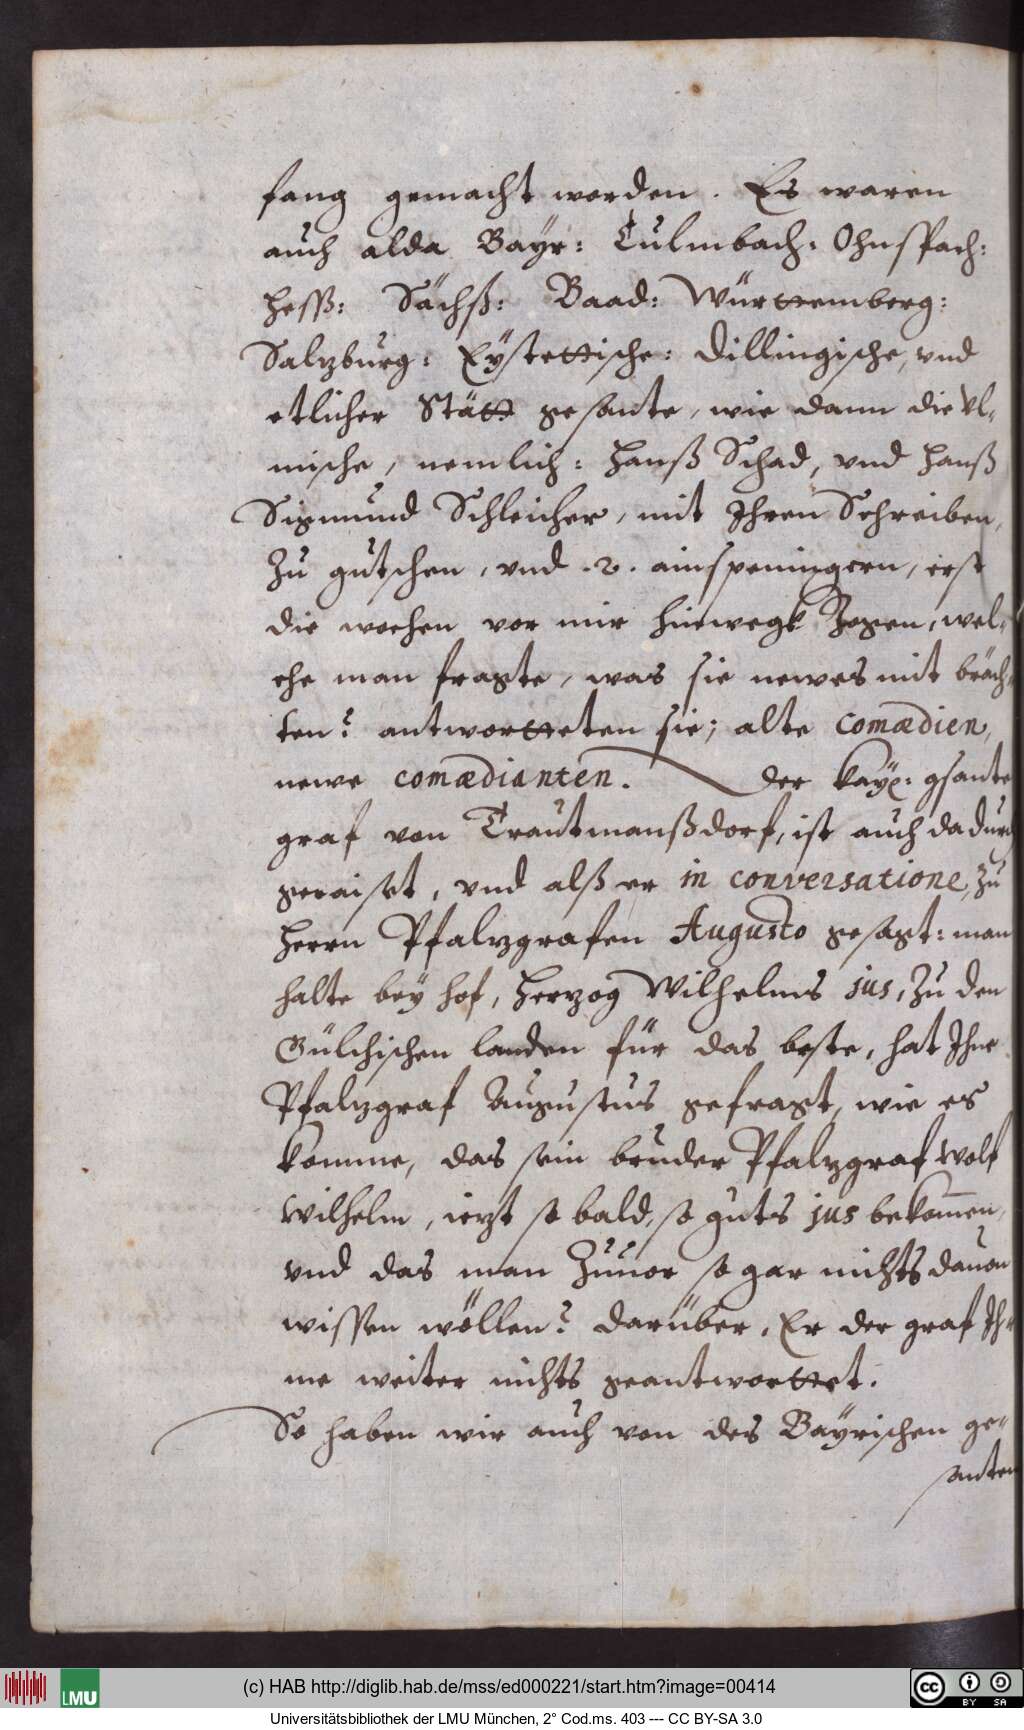 fang gemacht worden. Es waren
auch alda Bayr: Culmbach: Ohnspach:
Hess: Sächß: Baad: Württemberg:
Salzburg: Eÿstettische: Dillingische, vnd
etlicher Stätt gesante, wie dann die Vl-
mische, nemlich: Hanß Schad, vnd Hanß
Sigmund Schleicher, mit Ihren Schreiben,
Zu gutschen, vnd .2. ainspeningern, erst
die wochen vor mir hinwegk Zogen, wel-
che man fragte, was sie newes mit bräch-
ten? antwortteten sie; alte comædien,
newe comædianten. Der Kaÿ: gsante
graf von Trautmanßdorf, ist auch dadurch
geraiset, vnd alß er in conversatione, zu
Herrn Pfalzgrafen Augusto gesagt: man
halte beÿ hof, Herzog Wilhelms jus, Zu den
Gülchischen landen für das beste, hat Ihne
Pfalzgraf Augustus gefragt, wie es
komme, das sein bruder Pfalzgraf Wolf
Wilhelm, iezt so bald, so guts jus bekom̅en,
vnd das man Zuuor so gar nichts dauon
wissen wöllen? Darüber, Er der graf Ih-
me weiter nichts geantworttet.
So haben wir auch von des Baÿrischen ge-
santen
(c) HAB http://diglib.hab.de/mss/ed000221/start.htm?image=00414
LMU
CC BY SA
Universitätsbibliothek der LMU München, 2° Cod.ms. 403 --- CC BY-SA 3.0